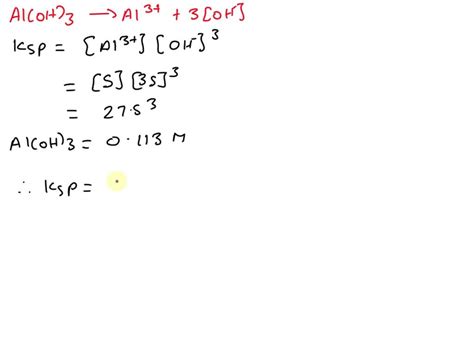 Al(OH)3 → Al3+ + 3[OH-]
Ksp = [Al3+] [OH-]3
= [S] [3S]3
= 27.S3
Al(OH)3 = 0.113 M
∴ Ksp =